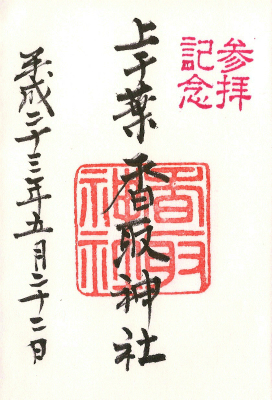 参拝
記念
上千葉香取神社
香取
神社
平成二十三年五月二十二日